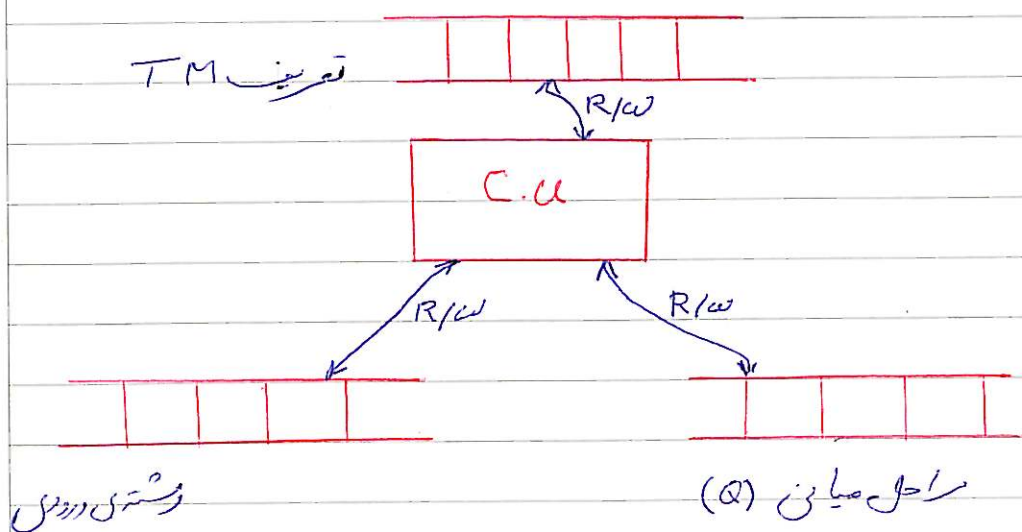 تعریف TM
R/W
C.U
R/W
R/W
رشته‌ی ورودی
مراحل میانی (Q)